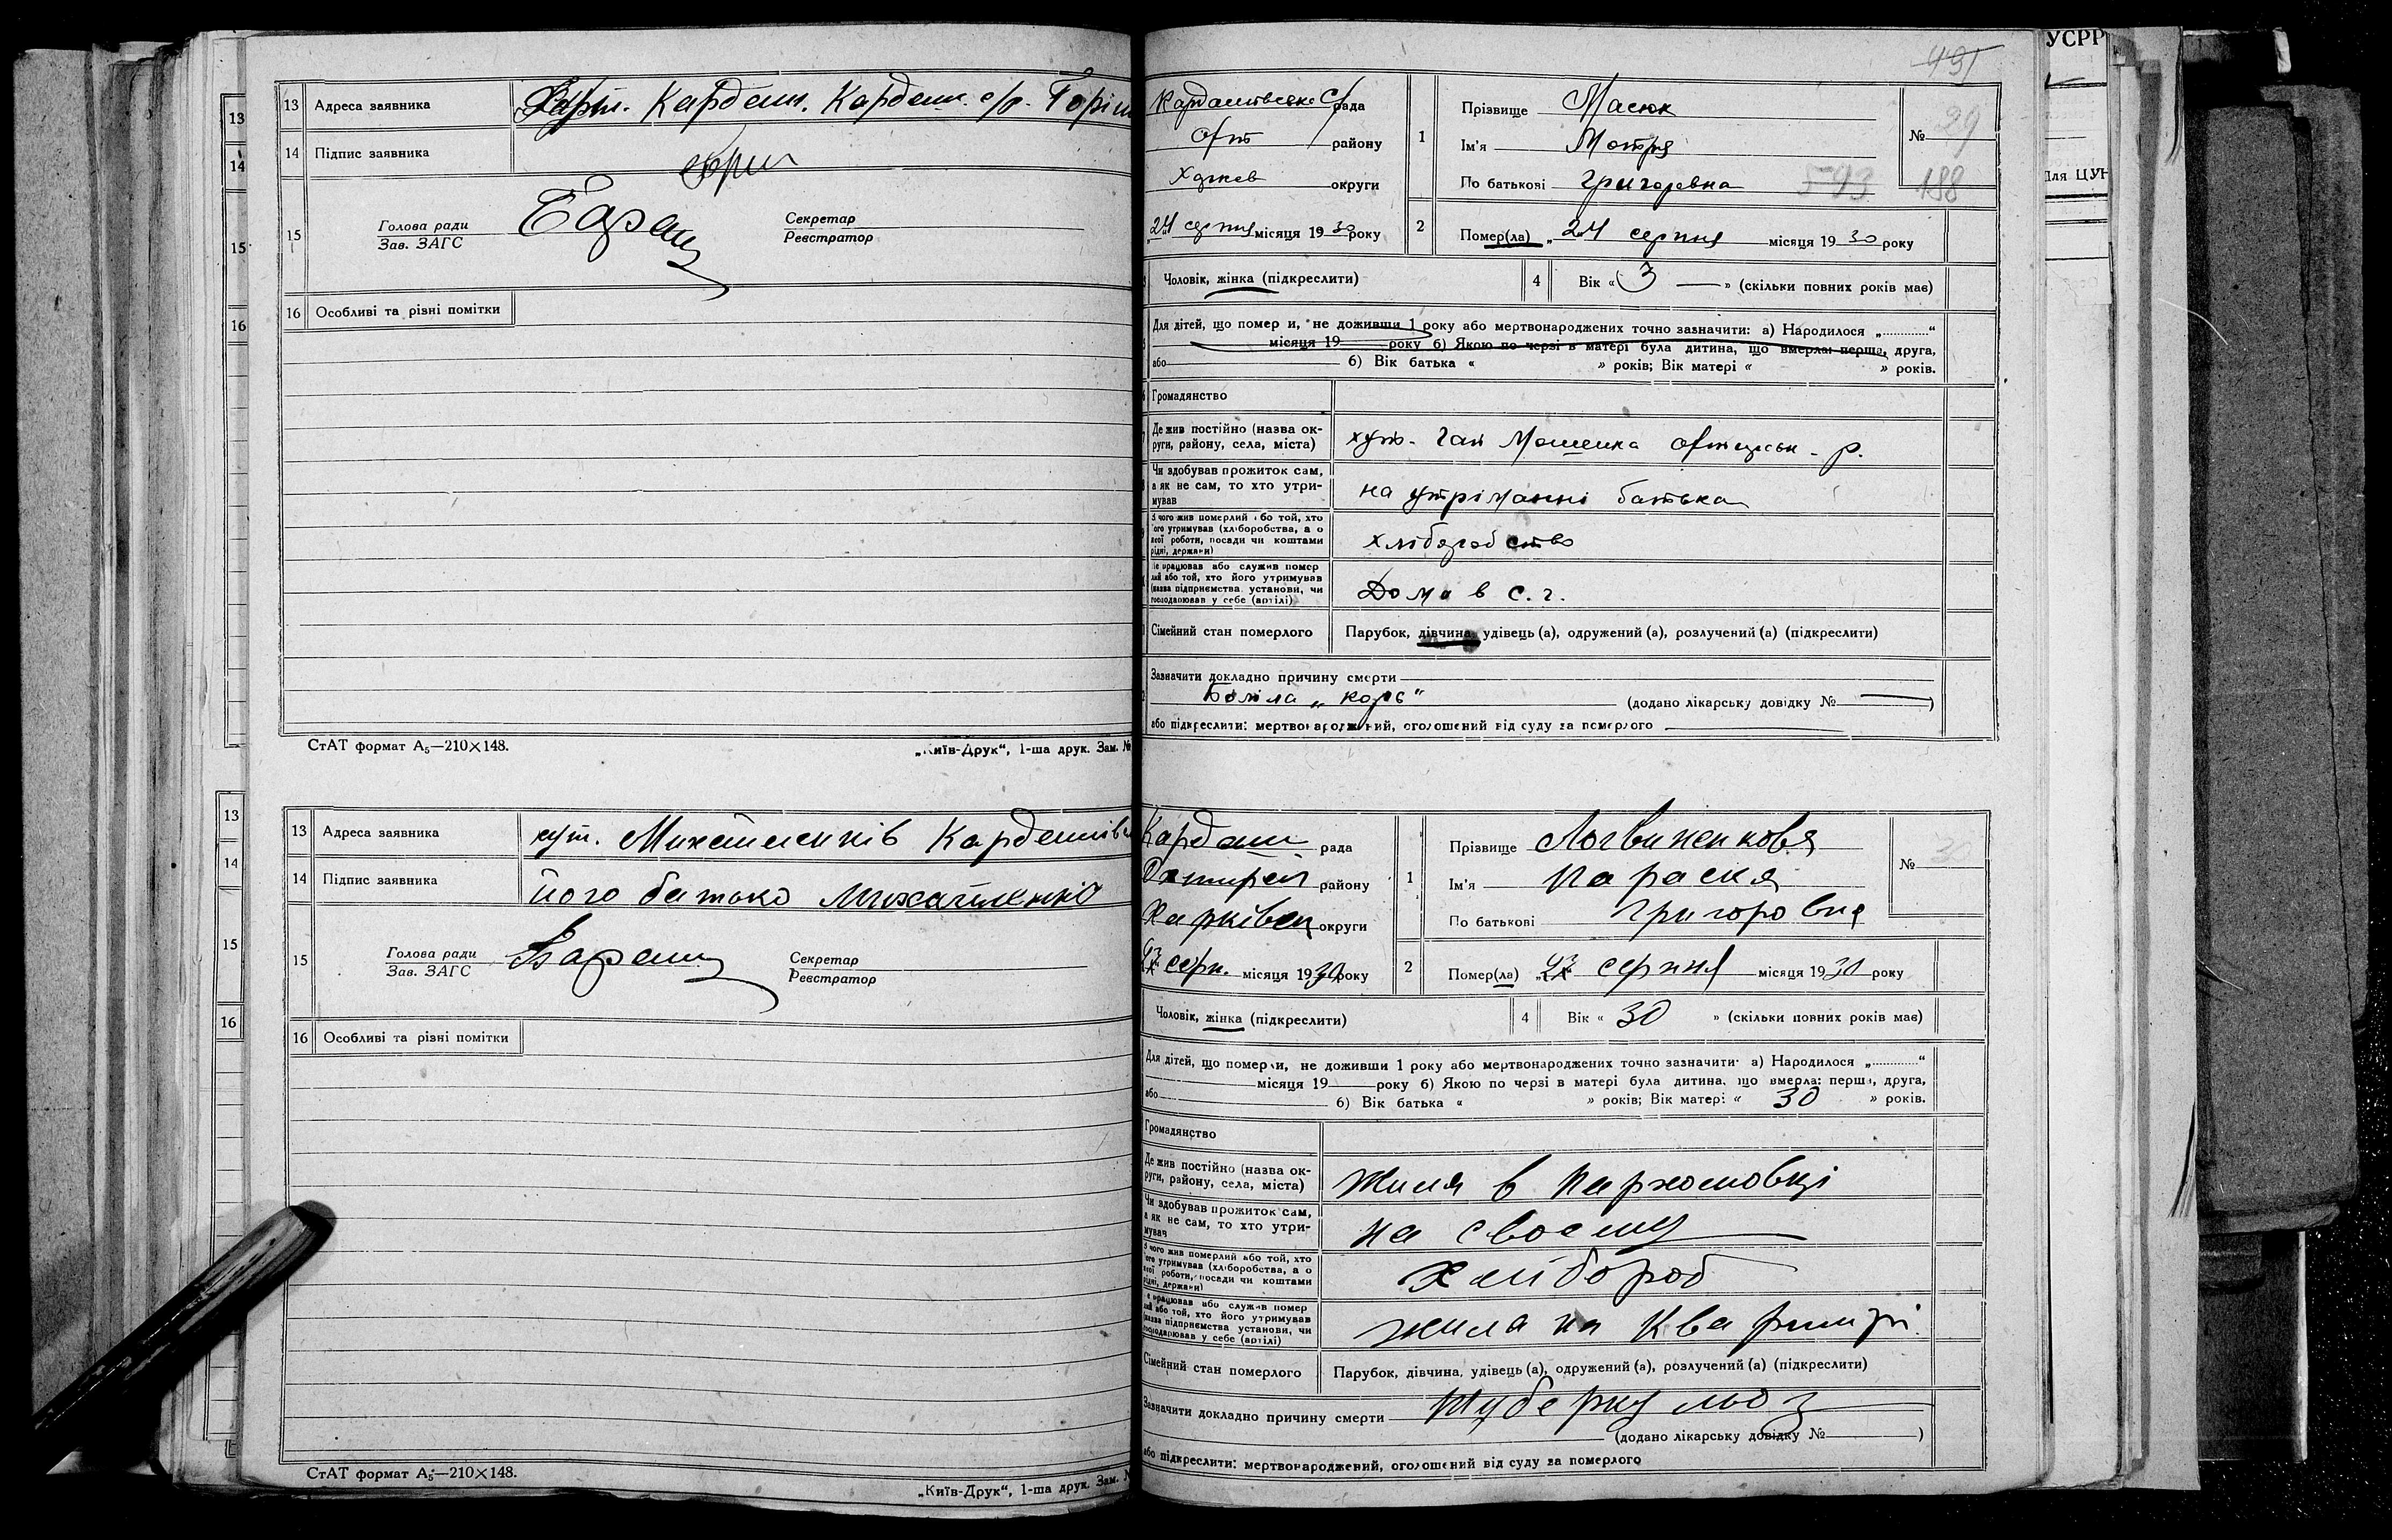 13 Адреса заявника Кардаш. Кардаш. с/р.
14 Підпис заявника
15 Голова ради Зав. ЗАГС Баран Секретар Реєстратор
16 Особливі та різні помітки
СтАТ формат А5—210×148. „Київ-Друк“, 1-ша друк. Зам. №
13 Адреса заявника хут. Михайленків
14 Підпис заявника його батько
15 Голова ради Зав. ЗАГС Баран Секретар Реєстратор
16 Особливі та різні помітки
СтАТ формат А5—210×148.
„Київ-Друк“, 1-ша друк. Зам.
491
Кардашівська С/рада
Охт району
Харков округи
„24 серпня місяця 1930 року
1 Прізвище Масюк
Ім'я Мотря
По батькові Григоревна
593
№ 29
188
2 Помер(ла) „24 серпня місяця 1930 року
Чоловік, жінка (підкреслити) 4 Вік «3» (скільки повних років має)
Для дітей, що померли, не доживши 1 року або мертвонароджених точно зазначити: а) Народилося „............“
місяця 19 року б) Якою по черзі в матері була дитина, що вмерла: перша, друга,
або б) Вік батька « » років; Вік матері « » років.
Громадянство
Де жив постійно (назва округи, району, села, міста) хут.
Чи здобував прожиток сам, а як не сам, то хто утримував на утріманні батька
З чого жив померлий або той, хто його утримував (хліборобства, а о
якої роботи, посади чи коштами рідні, держави) хліборобство
Де працював або служив померлий або той, хто його утримував (назва підприємства установи, чи господарював у себе (артілі) Дома в с. г.
Сімейний стан померлого Парубок, дівчина, удівець (а), одружений (а), розлучений (а) (підкреслити)
Зазначити докладно причину смерти
Боліла „корь“ (додано лікарську довідку № )
або підкреслити: мертвонароджений, оголошений від суду за померлого
Кардаш рада
Охтирськ району
Харківськ округи
серп. місяця 1930 року
1 Прізвище Логвиненкова
Ім'я Параска
По батькові Григоровна
№ 30
2 Помер(ла) серпня місяця 1930 року
Чоловік, жінка (підкреслити) 4 Вік «30» (скільки повних років має)
Для дітей, що померли, не доживши 1 року або мертвонароджених точно зазначити: а) Народилося „............“
місяця 19 року б) Якою по черзі в матері була дитина, що вмерла: перша, друга,
або б) Вік батька « » років; Вік матері «30» років.
Громадянство
Де жив постійно (назва округи, району, села, міста) Жила в Пархомовці
Чи здобував прожиток сам, а як не сам, то хто утримував на своєму
З чого жив померлий або той, хто його утримував (хліборобства, а о
якої роботи, посади чи коштами рідні, держави) хлібороб
Де працював або служив померлий або той, хто його утримував (назва підприємства установи, чи господарював у себе (артілі) жила на квартирі
Сімейний стан померлого Парубок, дівчина, удівець (а), одружений (а), розлучений (а) (підкреслити)
Зазначити докладно причину смерти туберкульоз
(додано лікарську довідку № )
або підкреслити: мертвонароджений, оголошений від суду за померлого
УСРР
Для ЦУН
13
14
15
16
13
14
15
16